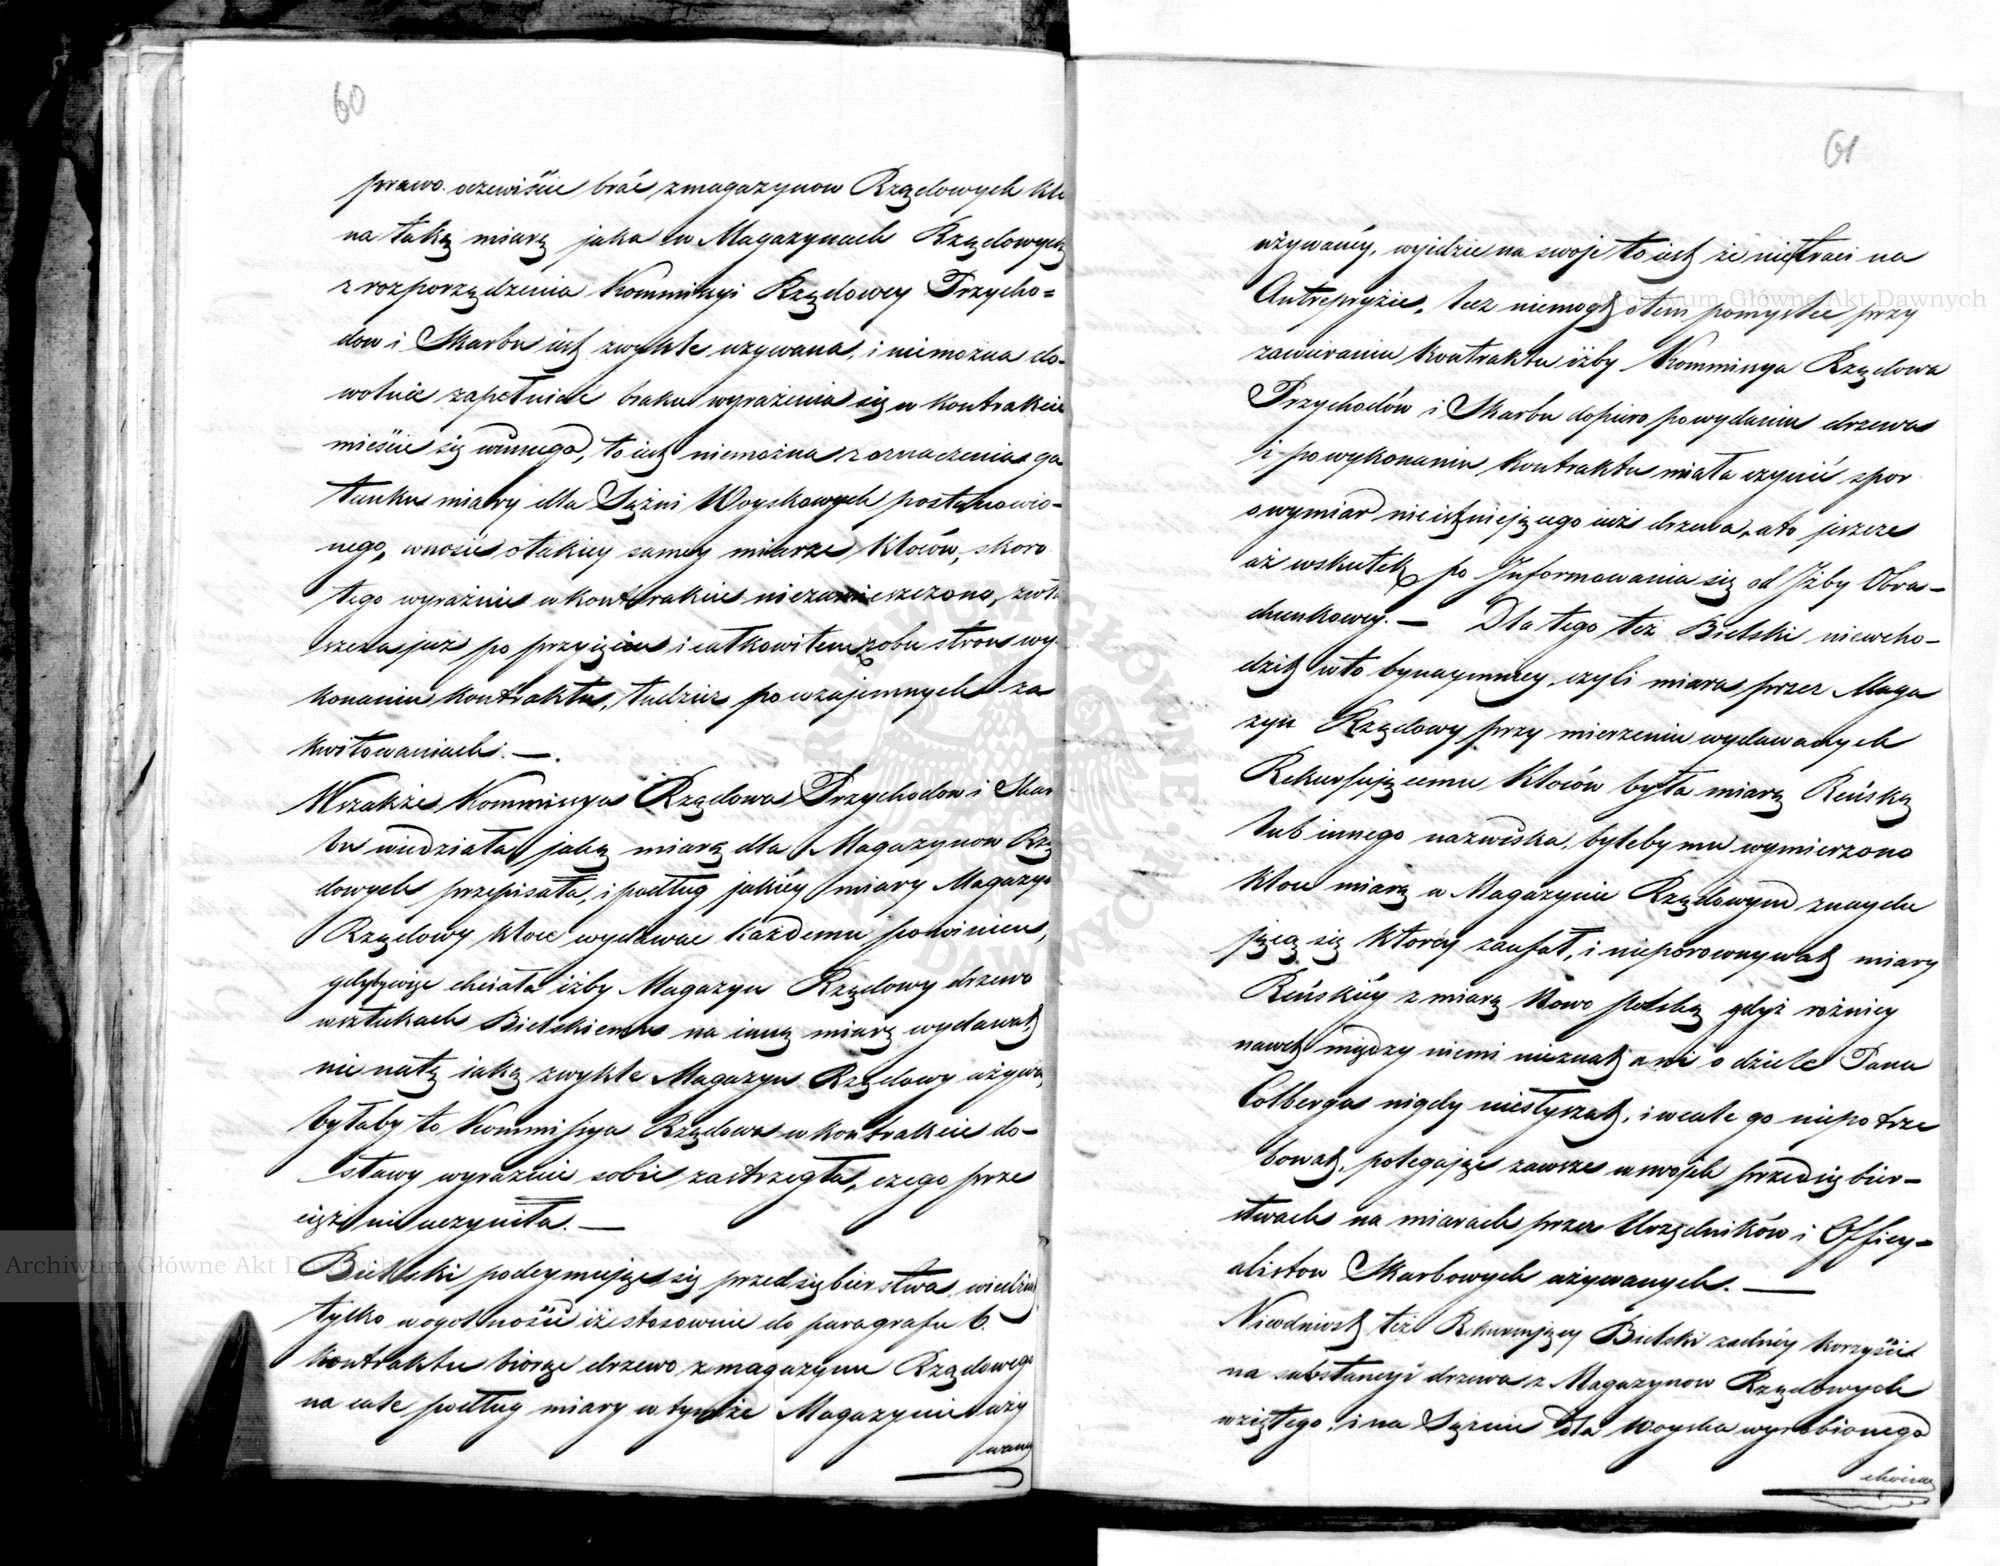 60
prawo oczewiście brać z magazynow Rządowych kło
na taką miarę jaka w Magazynach Rządowych
z rozporządzenia Kommissyi Rządowey Przycho=
dow i Skarbu iest zwykle uzywana, i niemożna do-
wolnie zapełniać braku wyrażenia się w kontrakcie
mieście się winnego, to iest niemożna z oznaczenia ga
tunku miary dla Sążni Woyskowych postanowio-
nego, wnosić o takiey samey miarze kloców, skoro
tego wyraźnie w kontrakcie niezamieszczono, zwła
szcza już po przyięciu i całkowitem z obu stron wy-
konaniu kontraktu, tudzież po wzajemnych za
kwitowaniach. —
Wszakże Kommissya Rządowa Przychodow i Skar
bu wiedziała jaką miarę dla Magazynow Rzą
dowych przepisała, i podług jakiéy miary Magazyn
Rządowy kloce wydawac każdemu powinien,
gdyby więc chciała iżby Magazyn Rządowy drzewo
w sztukach Bielskiemu na inną miarę wydawał
nie na tę iaką zwykle Magazyn Rządowy używa,
byłaby to Kommissya Rządowa w kontrakcie do-
stawy wyraznie sobie zastrzegła, czego prze
cięż nie uczyniła. —
Bielski podeymując się przedsiębierstwa, wiedział
tylko w ogolności iż stosownie do paragrafu 6.
kontraktu biorąc drzewo z magazynu Rządowego
na cale podług miary w tymże Magazynie uży
waney
61
używanéy, wyjdzie na swoje to iest że niestraci na
Antrepryzie, lecz niemogł o tem pomysleć przy
zawieraniu kontraktu iżby Kommissya Rządowa
Przychodów i Skarbu dopiero po wydaniu drzewa
i po wykonaniu kontraktu miała czynić spor
o wymiar nieistniejącego iuż drzewa, a to jeszcze
aż w skutek po Informowania się od Izby Obra-
chunkowey. — Dla tego też Bielski niewcho-
dził w to bynaymniey, czyli miara przez Maga
zyn Rządowy przy mierzeniu wydawanych
Rekursującemu kloców była miarą Reńską
lub innego nazwiska, byleby mu wymierzono
kloce miarą w Magazynie Rządowym znaydu
jącą się któréy zaufał, i nieporownywał miary
Reńskiéy z miarą Nowo polską gdyż różnicy
nawet między niemi nieznał ani o dziele Pana
Colberga nigdy niesłyszał, i wcale go niepotrze
bował, polegając zawsze w swojch przedsiębier-
stwach na miarach przez Urzędników i Officy-
alistow Skarbowych używanych. —
Nieodniosł też Rekurujący Bielski żadnéy korzyści
na substancyi drzewa z Magazynow Rządowych
wziętego, i na Sążnie dla Woyska wyrobionego
chociaż
ARCHIWUM GŁÓWNE AKT DAWNYCH
Archiwum Główne Akt Dawnych
Archiwum Główne Akt Dawnych